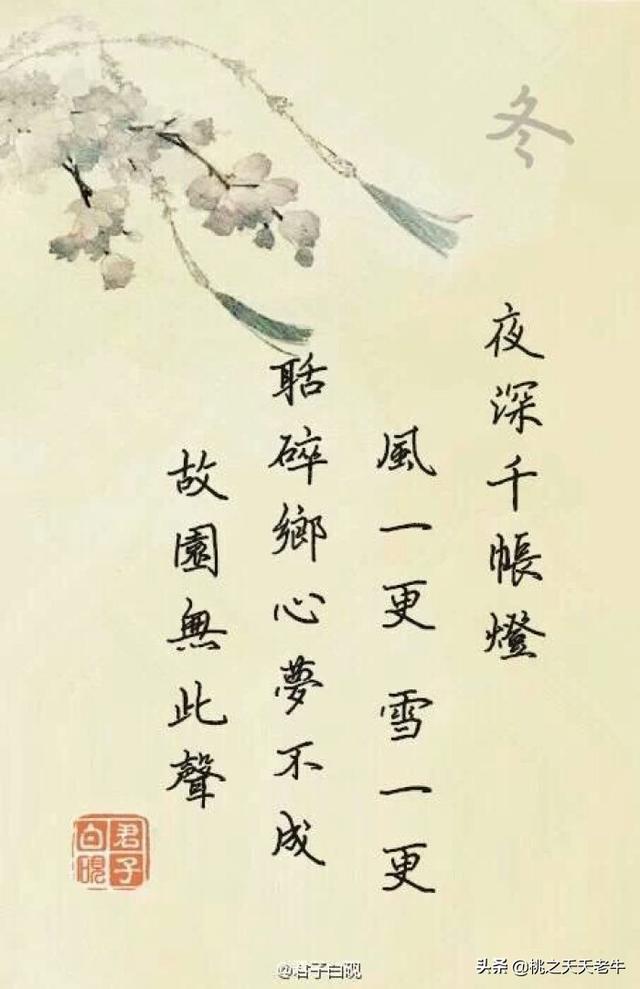 冬
夜深千帳燈
風一更 雪一更
聒碎鄉心夢不成
故園無此聲
君子
@君子白
头条 @桃之天天老牛